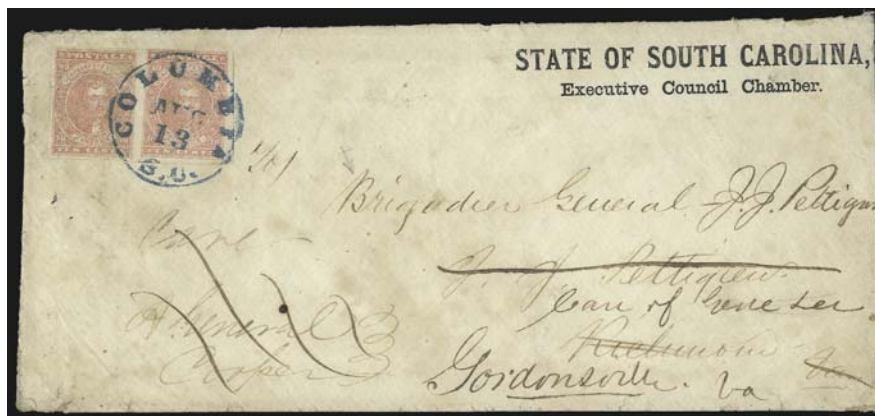 STATE OF SOUTH CAROLINA,
Executive Council Chamber.
COLUMBIA
AUG
13
S.C.
Brigadier General J.J. Pettigrew
J. J. Pettigrew
Care of Genl Lee
Richmond
Gordonsville. Va
Care
of General
Cooper